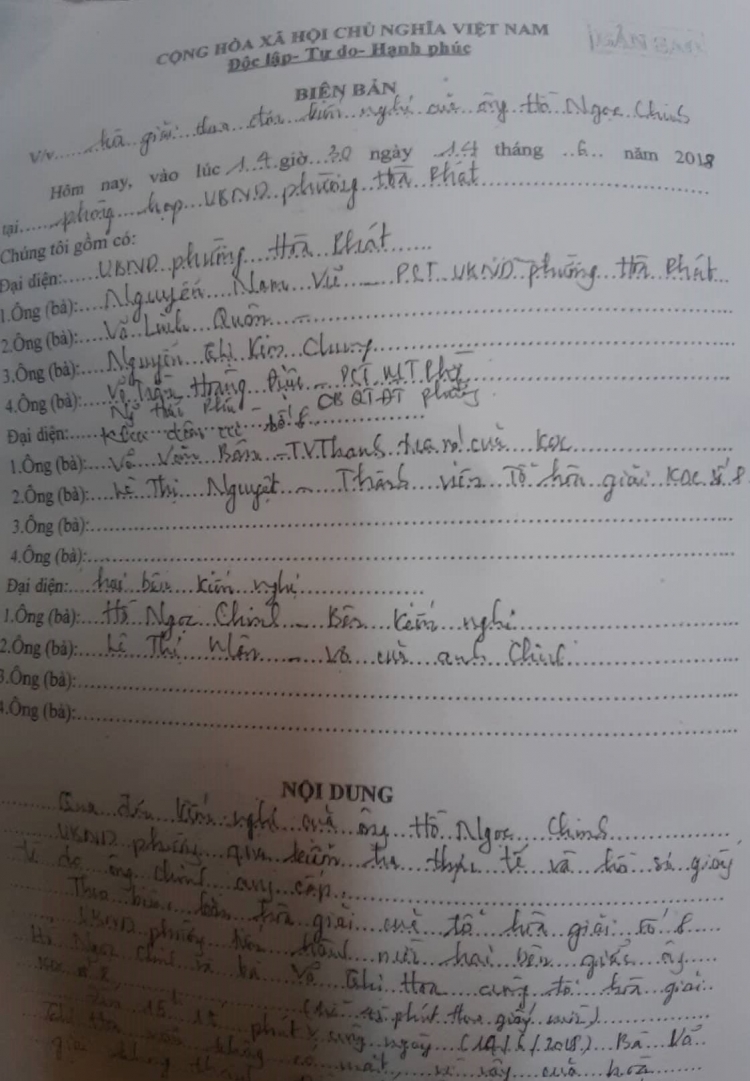 CỘNG HÒA XÃ HỘI CHỦ NGHĨA VIỆT NAM
Độc lập- Tự do- Hạnh phúc
BIÊN BẢN
V/v hòa giải đơn kiến nghị của ông Hồ Ngọc Chinh
Hôm nay, vào lúc 14 giờ 30 ngày 19 tháng 6 năm 2018
tại phòng họp UBND phường Hòa Phát
Chúng tôi gồm có:
Đại diện: UBND phường Hòa Phát
1.Ông (bà): Nguyễn Nam PCT UBND phường Hòa Phát
2.Ông (bà): Võ Quân
3.Ông (bà): Nguyễn Thị Kim Chung
4.Ông (bà): Trần Hoàng PCT
Ngô Hải CB QTĐT phường
Đại diện:
1.Ông (bà): Võ Văn của KDC
2.Ông (bà): Lê Thị Nguyệt - Thành viên Tổ hòa giải KDC số 8
3.Ông (bà):
4.Ông (bà):
Đại diện: hai bên kiến nghị
1.Ông (bà): Hồ Ngọc Chinh - Bên kiến nghị
2.Ông (bà): Lê Thị - vợ của anh Chinh
3.Ông (bà):
4.Ông (bà):
NỘI DUNG
Qua đơn kiến nghị của ông Hồ Ngọc Chinh
UBND phường qua kiểm tra thực tế và hồ sơ giấy
tờ do ông Chinh cung cấp.
Theo biên bản hòa giải của tổ hòa giải số 8
UBND phường tiến hành mời hai bên giữa ông
Hồ Ngọc Chinh và bà Võ Thị Hoa cùng tổ hòa giải
KDC số 8
Đến 15 15 phút cùng ngày (19/6/2018) Bà Võ
Thị Hoa vẫn không có mặt, vì vậy của hòa
giải không